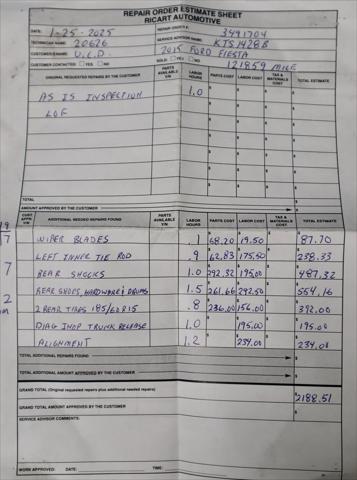 REPAIR ORDER ESTIMATE SHEET
RICART AUTOMOTIVE
DATE: 1-25-2025 REPAIR ORDER #: 3491704
TECHNICIAN NAME: 20626 SERVICE ADVISOR NAME: KTS1428B
CUSTOMER NAME: U.C.D. 2015 FORD FIESTA
CUSTOMER CONTACTED ☐ YES ☐ NO SOLD ☐ YES ☐ NO 121859 MILE
ORIGINAL REQUESTED REPAIRS BY THE CUSTOMER PARTS AVAILABLE Y/N LABOR HOURS PARTS COST LABOR COST TAX & MATERIALS COST TOTAL ESTIMATE
AS IS INSPECTION 1.0
LOF
TOTAL
AMOUNT APPROVED BY THE CUSTOMER
CUST. APPV. Y/N ADDITIONAL NEEDED REPAIRS FOUND PARTS AVAILABLE Y/N LABOR HOURS PARTS COST LABOR COST TAX & MATERIALS COST TOTAL ESTIMATE
WIPER BLADES .1 68.20 19.50 87.70
LEFT INNER TIE ROD .9 62.83 175.50 238.33
REAR SHOCKS 1.0 292.32 195.00 487.32
REAR SHOES, HARDWARE & DRUMS 1.5 261.66 292.50 554.16
2 REAR TIRES 185/60R15 .8 236.00 156.00 392.00
DIAG INOP TRUNK RELEASE 1.0 195.00 195.00
ALIGNMENT 1.2 234.00 234.00
TOTAL ADDITIONAL REPAIRS FOUND
TOTAL ADDITIONAL AMOUNT APPROVED BY THE CUSTOMER
GRAND TOTAL (Original requested repairs plus additional needed repairs) $2188.51
GRAND TOTAL AMOUNT APPROVED BY THE CUSTOMER
SERVICE ADVISOR COMMENTS:
WORK APPROVED: DATE: TIME: